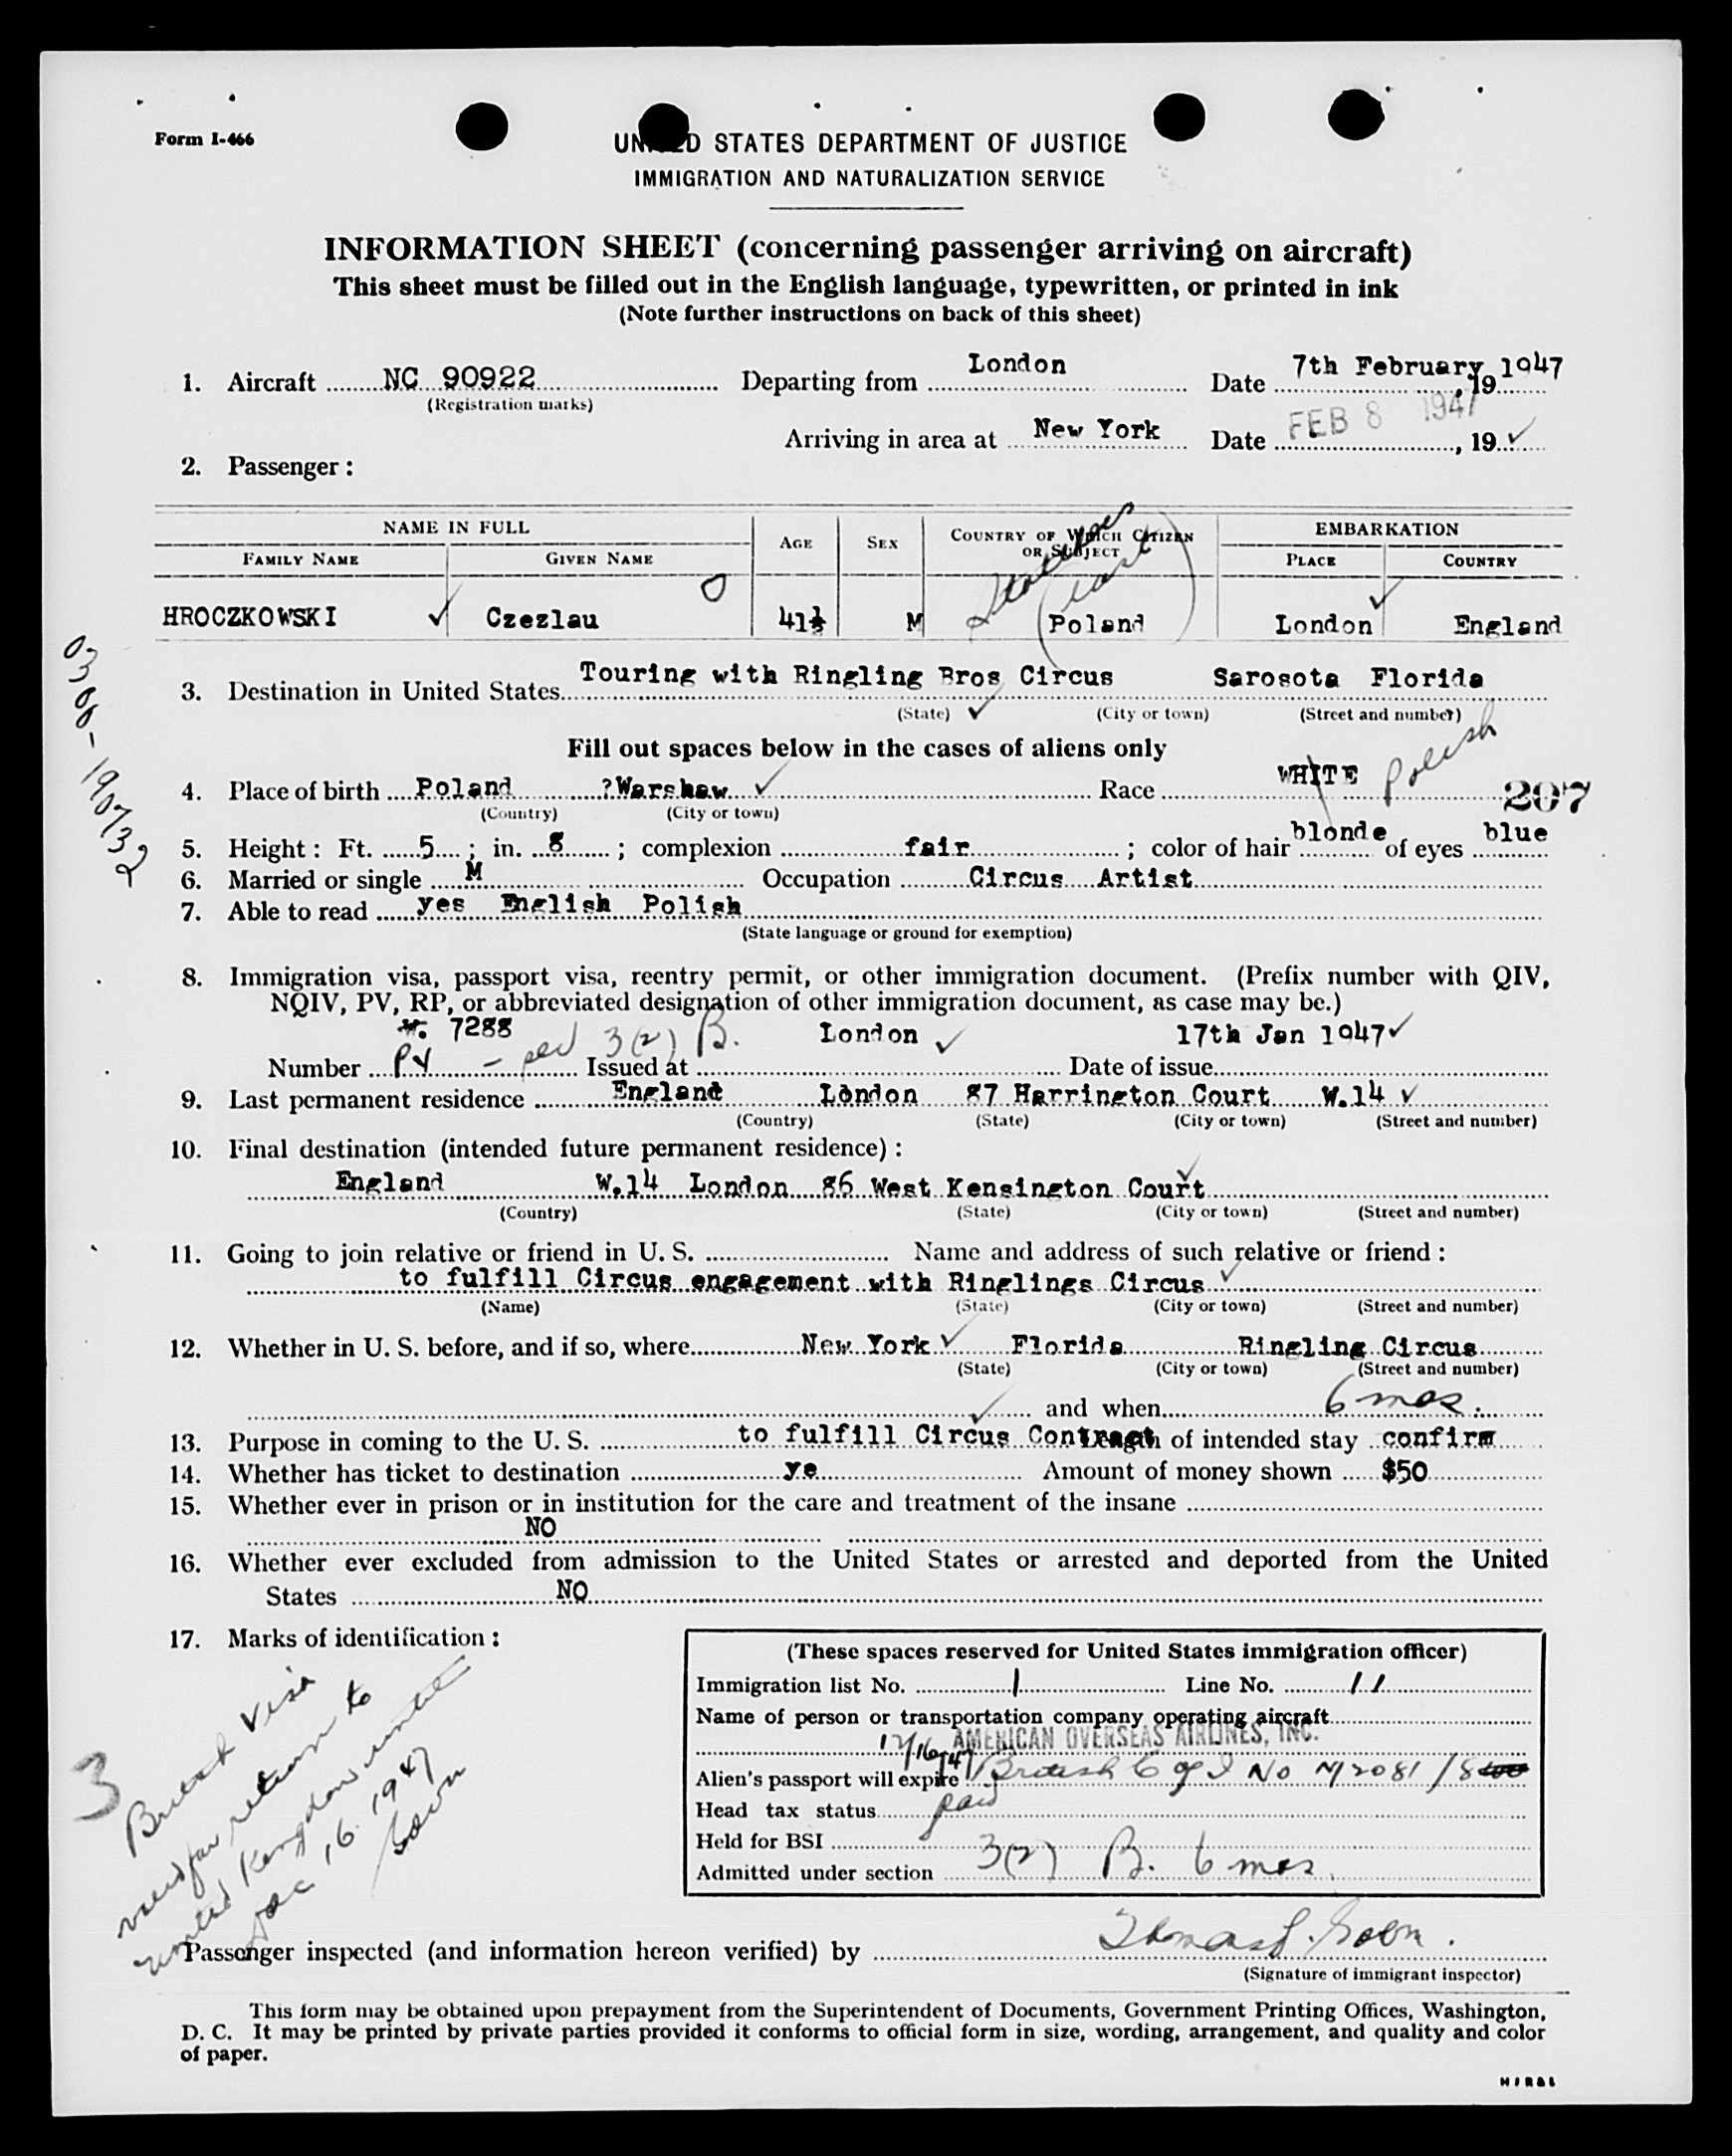 Form I-466
UNITED STATES DEPARTMENT OF JUSTICE
IMMIGRATION AND NATURALIZATION SERVICE
INFORMATION SHEET (concerning passenger arriving on aircraft)
This sheet must be filled out in the English language, typewritten, or printed in ink
(Note further instructions on back of this sheet)
1. Aircraft NC 90922 Departing from London Date 7th February, 19 1947
(Registration marks)
Arriving in area at New York Date FEB 8 1947, 19
2. Passenger:
NAME IN FULL AGE SEX COUNTRY OF WHICH CITIZEN OR SUBJECT EMBARKATION
FAMILY NAME GIVEN NAME PLACE COUNTRY
Stateless (last)
HROCZKOWSKI Czezlau 41½ M Poland London England
0300-190732
3. Destination in United States Touring with Ringling Bros Circus Sarosota Florida
(State) (City or town) (Street and number)
Fill out spaces below in the cases of aliens only
4. Place of birth Poland ?Warshaw Race WHITE Polish 207
(Country) (City or town)
5. Height: Ft. 5; in. 8; complexion fair; color of hair blonde of eyes blue
6. Married or single M Occupation Circus Artist
7. Able to read yes English Polish
(State language or ground for exemption)
8. Immigration visa, passport visa, reentry permit, or other immigration document. (Prefix number with QIV,
NQIV, PV, RP, or abbreviated designation of other immigration document, as case may be.)
7288 3(2) B. London 17th Jan 1947
Number PV Issued at Date of issue
9. Last permanent residence England London 87 Harrington Court W.14
(Country) (State) (City or town) (Street and number)
10. Final destination (intended future permanent residence):
England W.14 London 86 West Kensington Court
(Country) (State) (City or town) (Street and number)
11. Going to join relative or friend in U. S. Name and address of such relative or friend:
to fulfill Circus engagement with Ringlings Circus
(Name) (State) (City or town) (Street and number)
12. Whether in U. S. before, and if so, where New York Florida Ringling Circus
(State) (City or town) (Street and number)
and when 6 mos.
13. Purpose in coming to the U. S. to fulfill Circus Contract Length of intended stay confirm
14. Whether has ticket to destination ye Amount of money shown $50
15. Whether ever in prison or in institution for the care and treatment of the insane
NO
16. Whether ever excluded from admission to the United States or arrested and deported from the United
States NO
17. Marks of identification:
3
British Visa
valid for return to
United Kingdom until
Dec 16. 1947
(These spaces reserved for United States immigration officer)
Immigration list No. 1 Line No. 11
Name of person or transportation company operating aircraft
AMERICAN OVERSEAS AIRLINES, INC.
12/16/47
Alien's passport will expire British C of I No M2081/8
Head tax status paid
Held for BSI
Admitted under section 3(2) B. 6 mos.
Passenger inspected (and information hereon verified) by Thomas
(Signature of immigrant inspector)
This form may be obtained upon prepayment from the Superintendent of Documents, Government Printing Offices, Washington,
D. C. It may be printed by private parties provided it conforms to official form in size, wording, arrangement, and quality and color
of paper.